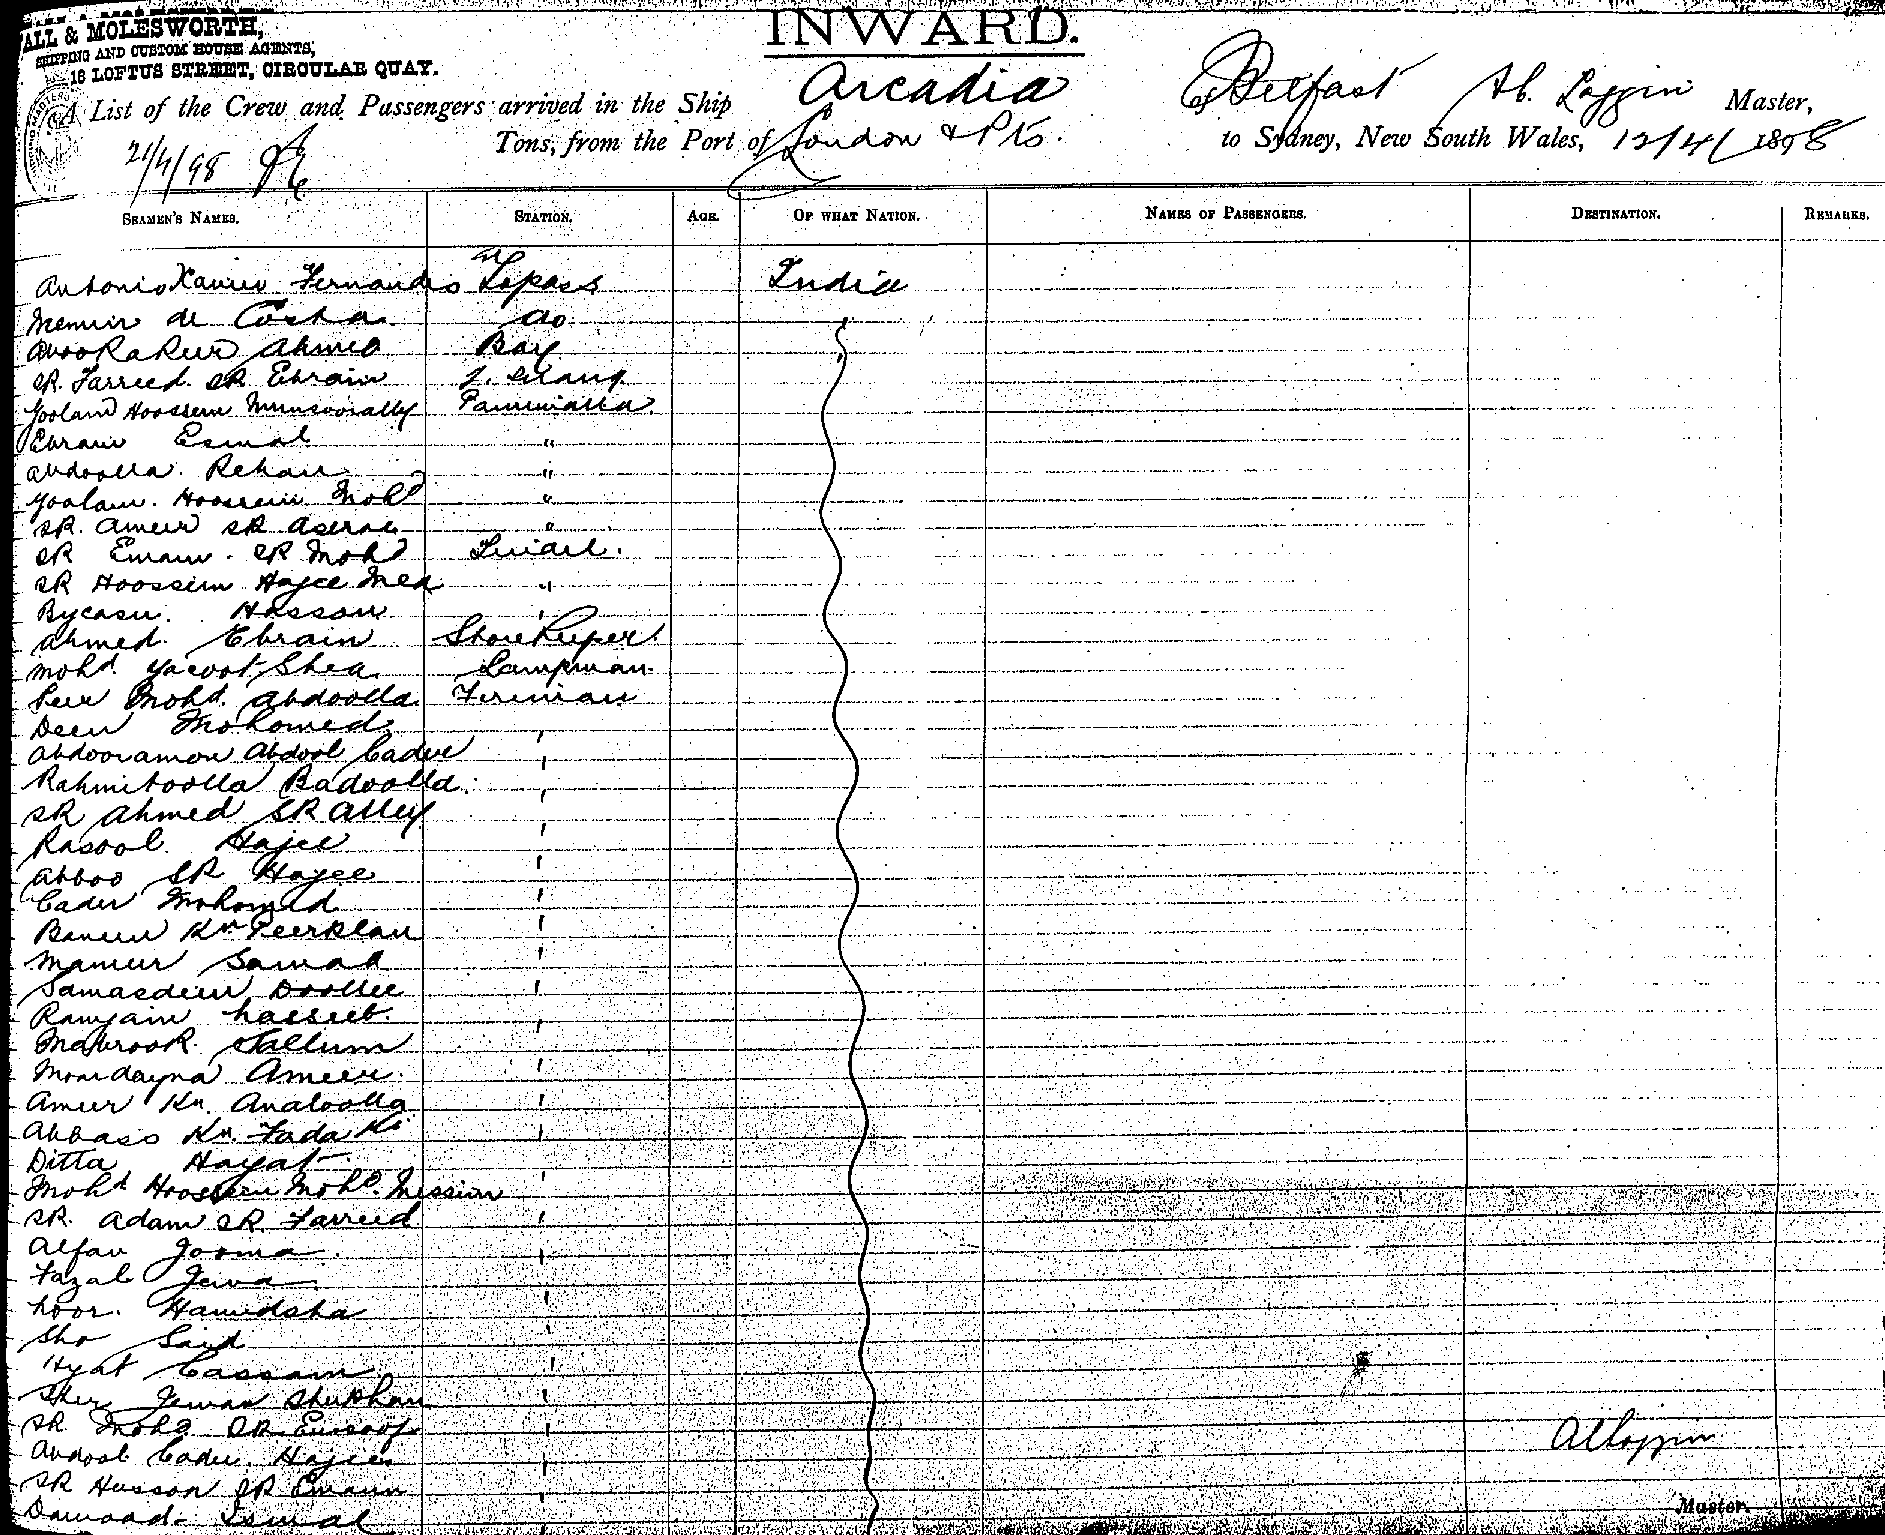 ALL & MOLESWORTH,
SHIPPING AND CUSTOM HOUSE AGENTS,
18 LOFTUS STREET, CIRCULAR QUAY.
INWARD.
A List of the Crew and Passengers arrived in the Ship Arcadia of Belfast Loggin Master,
Tons, from the Port of London & Pts. to Sydney, New South Wales, 12/4/1898
21/4/98
SEAMEN'S NAMES. STATION. AGE. OF WHAT NATION. NAMES OF PASSENGERS. DESTINATION. REMARKS.
Antonio Xavier Fernandes Topass India
de Costa do
Ahmed Boy
SR. Farreed SR Ebraim
Goolam Hoossein Paniwalla
Ebraim Esmal "
Abdoolla Rehan "
Goolam Hoossein Mohd "
SR. Ameer SR "
SR Emam SR Mohd Tindel.
SR Hoossein Hajee "
Hassan "
Ahmed Ebraim Storekeeper
Mohd Yacoot Shea Lampman
Peer Mohd. Abdoolla Fireman
Deen Mohomed '
Abdooramon Abdool Cader '
Rahmitoolla Badoolla '
SR Ahmed SR Alley '
Rasool Hajee '
Abboo SR Hajee '
Cader Mohomed '
Kn '
Samad '
Samasdeen Doollee '
Ramjam '
Mabrook Sallum '
Ameer '
Ameer Kn. '
Abbass Kn. Fada Kn '
Ditta Hayat '
Mohd Hoossein Mohd. '
SR. Adam SR Farreed '
Alfan Jooma '
Fazal Jewa '
Noor. Hamidsha '
Sho Said '
Hyat Cassam '
Sher Jewan '
SR Mohd SR Eusoof '
Abdool Cader Hajee '
SR Hassan SR Emam '
Dawood Ismal '
A Loggin
Master.